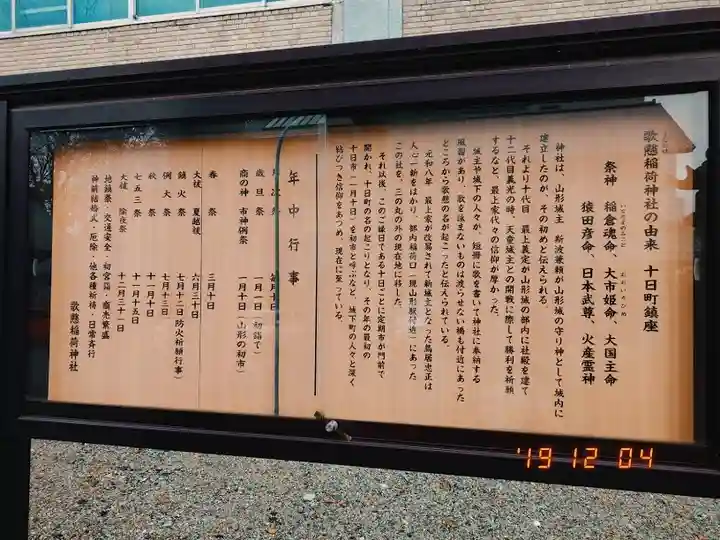 歌懸稲荷神社の由来　十日町鎮座
祭神　稲倉魂命、大市姫命、大国主命
猿田彦命、日本武尊、火産霊神
神社は、山形城主　斯波兼頼が山形城の守り神として城内に
建立したのが、その初めと伝えられる
それより十代目　最上義定が山形城の郭内に社殿を建て
十二代目義光の時、天童城主との開戦に際して勝利を祈願
するなど、最上家代々の信仰が厚かった。
城主や城下の人々が、短冊に歌を書いて神社に奉納する
風習があり、歌を詠まないものは渡らせない橋も付近にあった
ところから歌懸の名が起こったと伝えられている。
元和八年　最上家が改易されて新城主となった鳥居忠正は
人心一新をはかり、郭内稲荷口（現山形駅付近）にあった
この社を、三の丸の外の現在地に移した。
それ以後、このご縁日である十日ごとに定期市が門前で
開かれ、十日町の名の起こりとなり、その年の最初の
十日市（一月十日）を初市と呼ぶなど、城下町の人々と深く
結びつき信仰をあつめ、現在に至っている。
年中行事
月次祭　毎月十日
歳旦祭　一月一日（初詣で）
商の神　市神例祭　一月十日（山形の初市）
春祭　三月十日
大祓　夏越祓　六月三十日
鎮火祭　七月十二日（防火祈願行事）
例大祭　七月十三日
秋祭　十一月十日
七五三祭　十一月十五日
大祓　除夜祭　十二月三十一日
地鎮祭・交通安全・初宮詣・商売繁盛
神前結婚式・厄除・他各種祈祷・日常斉行
歌懸稲荷神社
'19 12 04